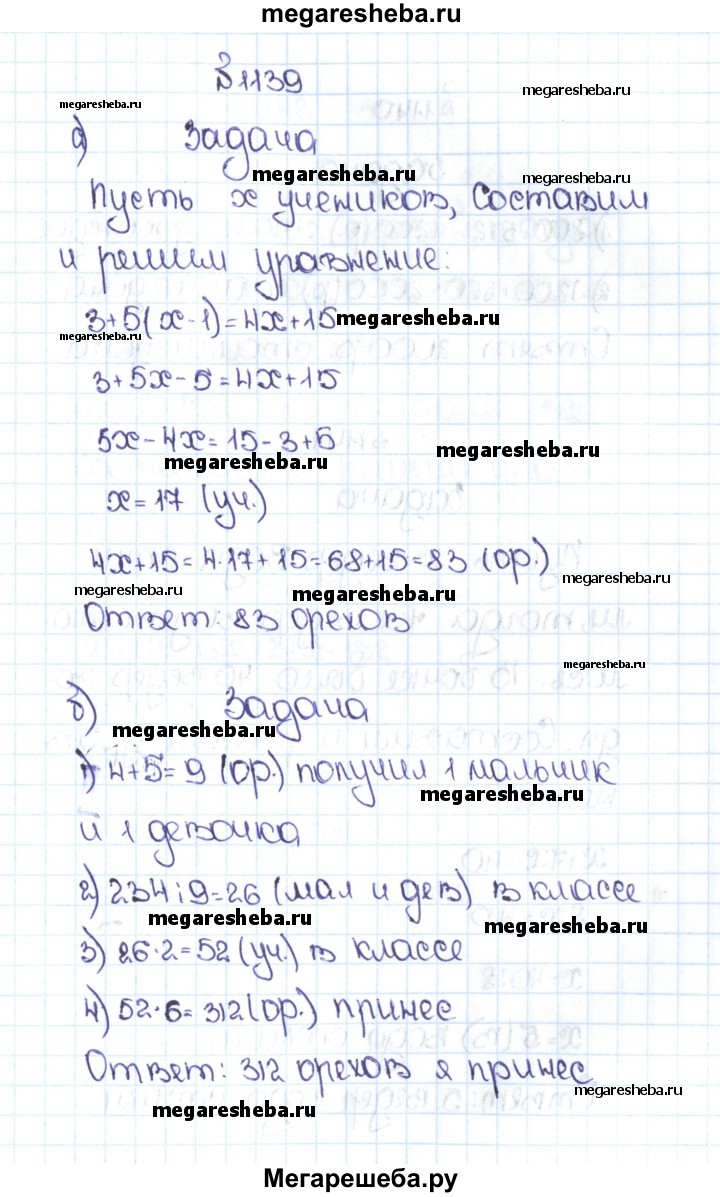 megaresheba.ru
№1139
megaresheba.ru
megaresheba.ru
а) Задача
megaresheba.ru
megaresheba.ru
Пусть x учеников, Составим
и решим уравнение:
3+5(x-1)=4x+15 megaresheba.ru
megaresheba.ru
3+5x-5=4x+15
5x-4x=15-3+5
megaresheba.ru
megaresheba.ru
x=17 (уч.)
4x+15=4·17+15=68+15=83 (ор.)
megaresheba.ru
megaresheba.ru
megaresheba.ru
Ответ: 83 орехов
megaresheba.ru
б) Задача
megaresheba.ru
1) 4+5=9 (ор.) получил 1 мальчик
megaresheba.ru
и 1 девочка
2) 234:9=26 (мал и дев) в классе
megaresheba.ru
megaresheba.ru
3) 26·2=52 (уч.) в классе
4) 52·6=312 (ор.) принес
Ответ: 312 орехов я принес
megaresheba.ru
megaresheba.ru
Мегарешеба.ру